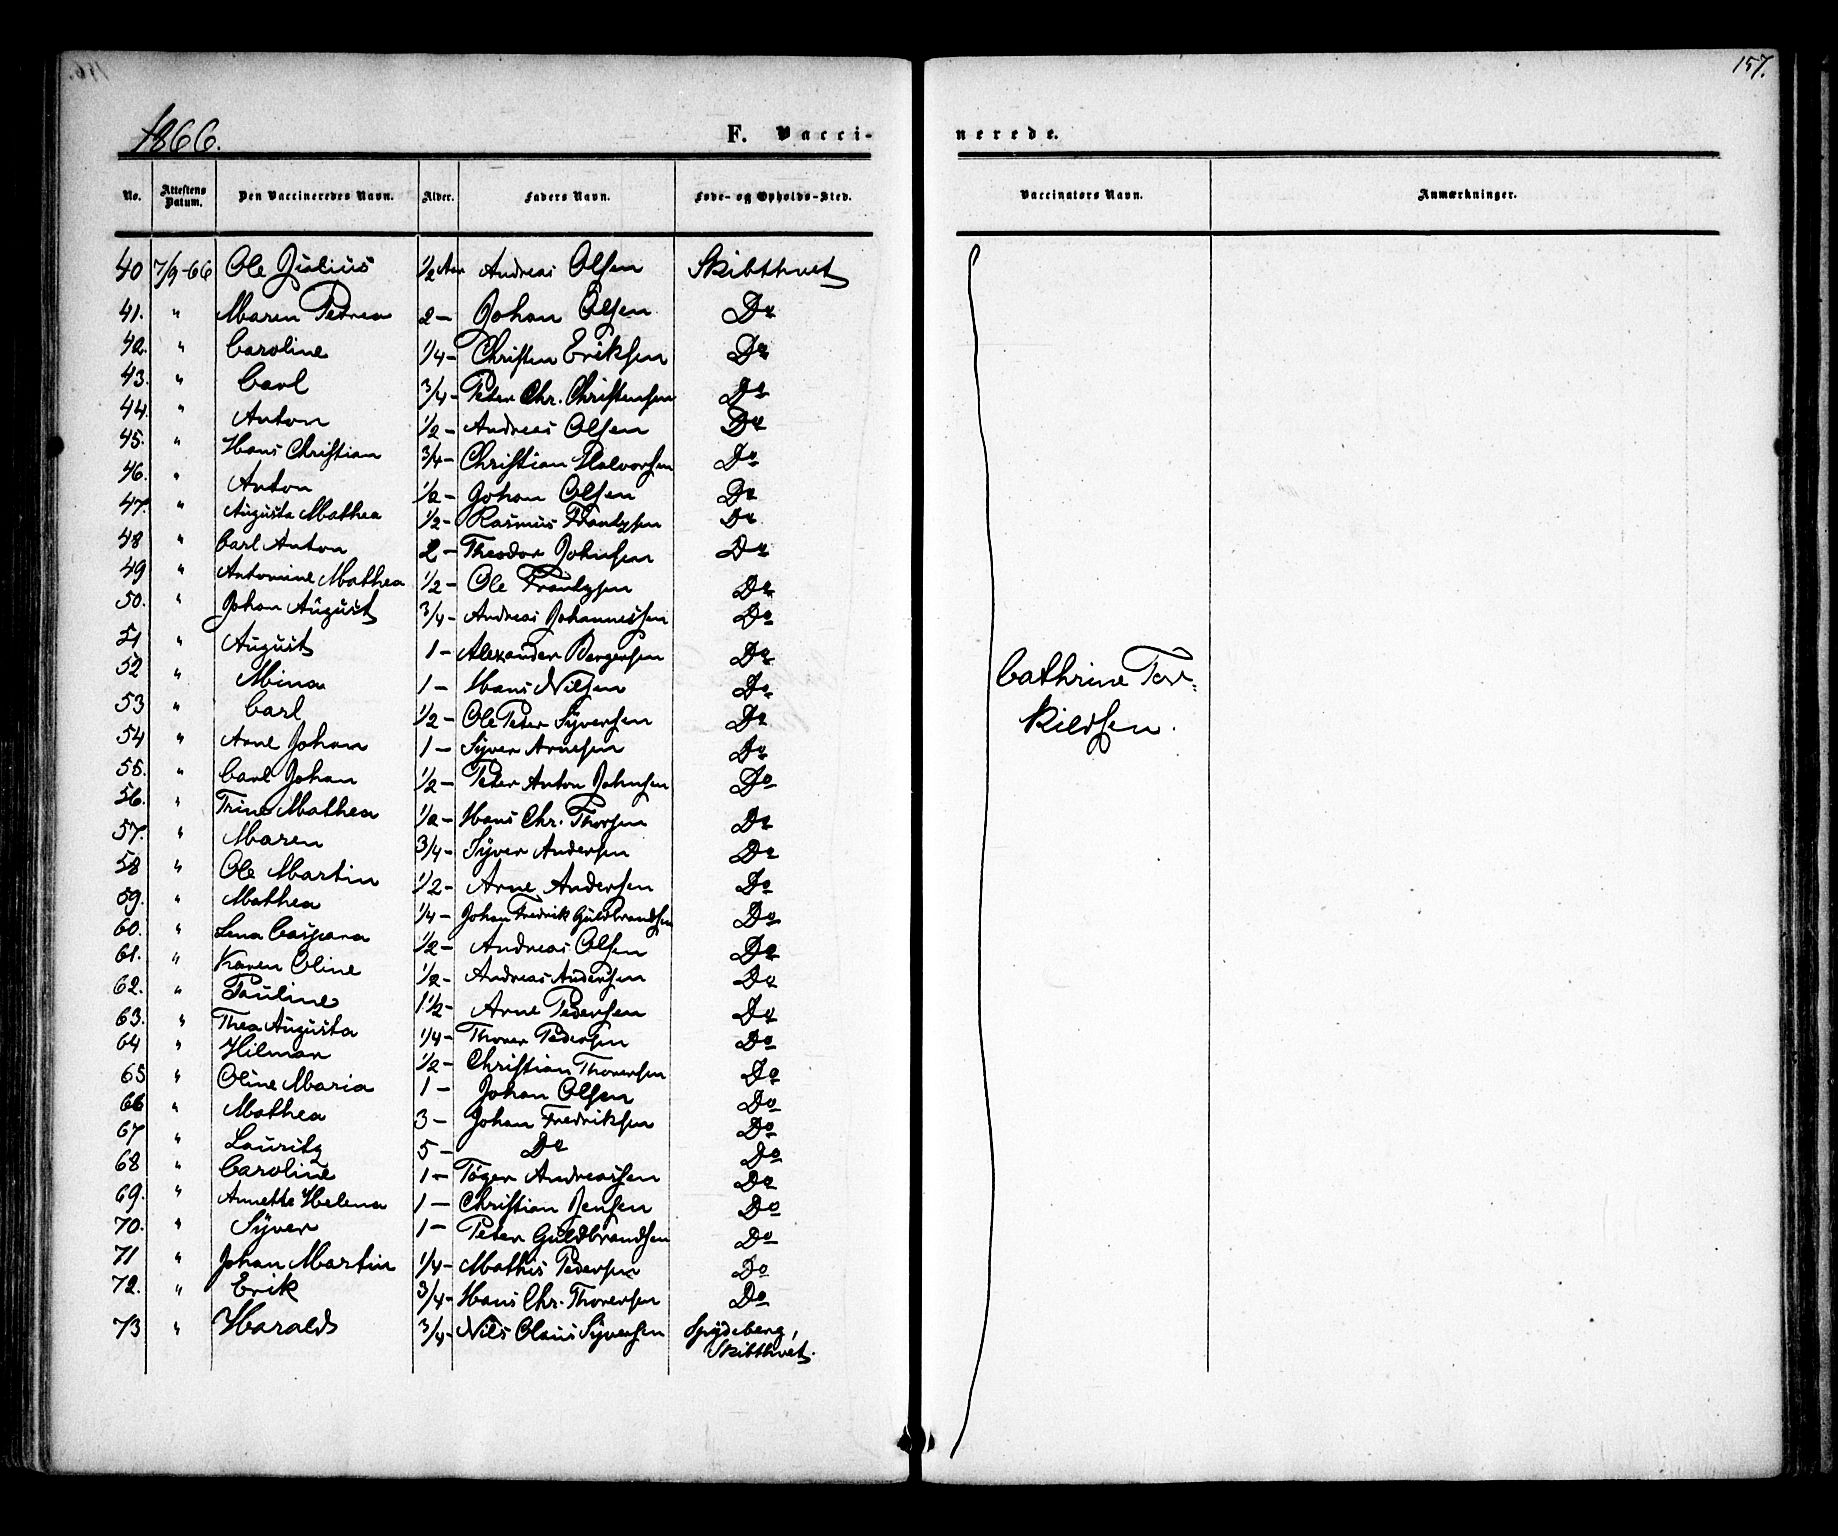 157.
1866.
F. Vacci-
nerede.
No. Attestens Datum. Den Vaccineredes Navn. Alder. Faders Navn. Føde- og Opholds-Sted. Vaccinators Navn. Anmærkninger.
40 7/9-66 Ole Julius 1/2 Aar Andreas Olsen Skibthvet
41. " Maren Petrea 2 - Johan Olsen Do
42. " Caroline 1/4 - Christen Eriksen Do
43. " Carl 3/4 - Peter Chr. Christensen Do
44. " Anton 1/2 - Andreas Olsen Do
45. " Hans Christian 3/4 - Christian Halvorsen Do
46. " Anton 1/2 - Johan Olsen Do
47. " Augusta Mathea 1/2 - Rasmus Frantzsen Do
48 " Carl Anton 2 - Theodor Johnsen Do
49 " Antonine Mathea 1/2 - Ole Frantzsen Do
50. " Johan August 3/4 - Andreas Johannessen Do
51 " August 1 - Alexander Bergersen Do
52 " Mina 1 - Hans Nilsen Do
53 " Carl 1/2 - Ole Peter Syversen Do
54 " Arne Johan 1 - Syver Arnesen Do
55. " Carl Johan 1/2 - Peter Anton Johnsen Do
56. " Trine Mathea 1/2 - Hans Chr. Thorsen Do
57. " Maren 3/4 - Syver Andersen Do
58 " Ole Martin 1/2 - Arne Andersen Do
59. " Mathea 1/4 - Johan Fredrik Guldbrandsen Do
60. " Lena Caspara 1/2 - Andreas Olsen Do
61. " Karen Oline 1/2 - Andreas Andersen Do
62. " Pauline 1 1/2 - Arne Pedersen Do
63. " Thea Augusta 1/4 - Thorer Pedersen Do
64 " Hilmar 1/2 - Christian Thoresen Do
65 " Oline Maria 1 - Johan Olsen Do
66 " Mathea 3 - Johan Fredriksen Do
67 " Lauritz 5 - Do Do
68 " Caroline 1 - Töger Andreassen Do
69. " Annette Helena 1 - Christian Jensen Do
70. " Syver 1 - Peter Guldbrandsen Do
71 " Johan Martin 1/4 - Mathis Pedersen Do
72. " Erik 3/4 - Hans Chr. Thoresen Do
73 " Harald 3/4 - Nils Olaus Syversen Spydeberg,
Skibthvet.
Cathrine Tor-
kildsen.